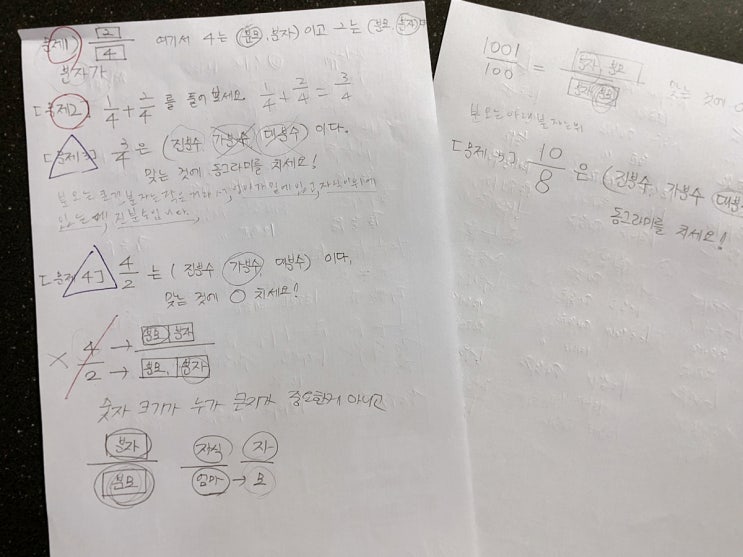 [문제1] 2/4 여기서 4는 (분모, 분자) 이고 2는 (분모 분자)
분자가
[문제2] 1/4 + 2/4 를 풀어보세요. 1/4 + 2/4 = 3/4
[문제3] 3/4은 (진분수 가분수 대분수) 이다.
맞는 것에 동그라미를 치세요!
진분수입니다.
[문제4] 4/2 는 (진분수 가분수 대분수) 이다.
맞는 것에 ○ 치세요!
× 4 → 분모 분자
2 → 분모, 분자
숫자 크기가 누가 큰가가 중요한게 아니고
분자 자식 자
분모 엄마 → 모
1001/100 = 분자, 분모 / 분자, 분모
맞는 것에 ○
분모는 아래 분자는 위
[문제 5] 10/8 은 (진분수, 가분수 대분
동그라미를 치세요!